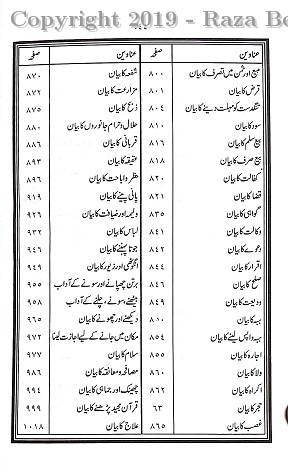 Copyright 2019 - Raza Be
عناوین صفحہ عناوین صفحہ
بیع اور ثمن میں تصرف کا بیان ۸۰۰ شفعہ کا بیان ۸۷۰
قرض کا بیان ۸۰۱ مزارعت کا بیان ۸۷۲
تنگدست کو مہلت دینے کا بیان ۸۰۴ ذبح کا بیان ۸۷۵
سود کا بیان ۸۱۰ حلال و حرام جانوروں کا بیان ۸۸۰
بیع سلم کا بیان ۸۱۶ قربانی کا بیان ۸۸۶
بیع صرف کا بیان ۸۱۸ عقیقہ کا بیان ۸۹۳
کفالت کا بیان ۸۲۰ حظر و اباحت کا بیان ۸۹۶
قضا کا بیان ۸۲۱ پانی پینے کا بیان ۹۱۹
گواہی کا بیان ۸۳۵ ولیمہ اور ضیافت کا بیان ۹۲۶
وکالت کا بیان ۸۴۱ لباس کا بیان ۹۳۲
دعوے کا بیان ۸۴۲ جوتا پہننے کا بیان ۹۴۶
اقرار کا بیان ۸۴۴ انگوٹھی اور زیور کا بیان ۹۴۹
صلح کا بیان ۸۴۶ برتن چھپانے اور سونے کے آداب ۹۵۵
ودیعت کا بیان ۸۴۹ بیٹھنے، سونے، چلنے کے آداب ۹۵۸
ہبہ کا بیان دیکھنے اور چھونے کا بیان ۹۶۵
ہبہ واپس لینے کا بیان ۸۵۴ مکان میں جانے کے لیے اجازت لینا ۹۷۲
اجارہ کا بیان ۸۵۵ سلام کا بیان ۹۷۷
ولا کا بیان ۸۶۰ مصافحہ و معانقہ کا بیان ۹۸۶
اکراہ کا بیان ۸۶۲ چھینک اور جماہی کا بیان ۹۹۴
حجر کا بیان ۶۳ قرآن مجید پڑھنے کا بیان ۹۹۹
غصب کا بیان ۸۶۵ علاج کا بیان ۱۰۱۸